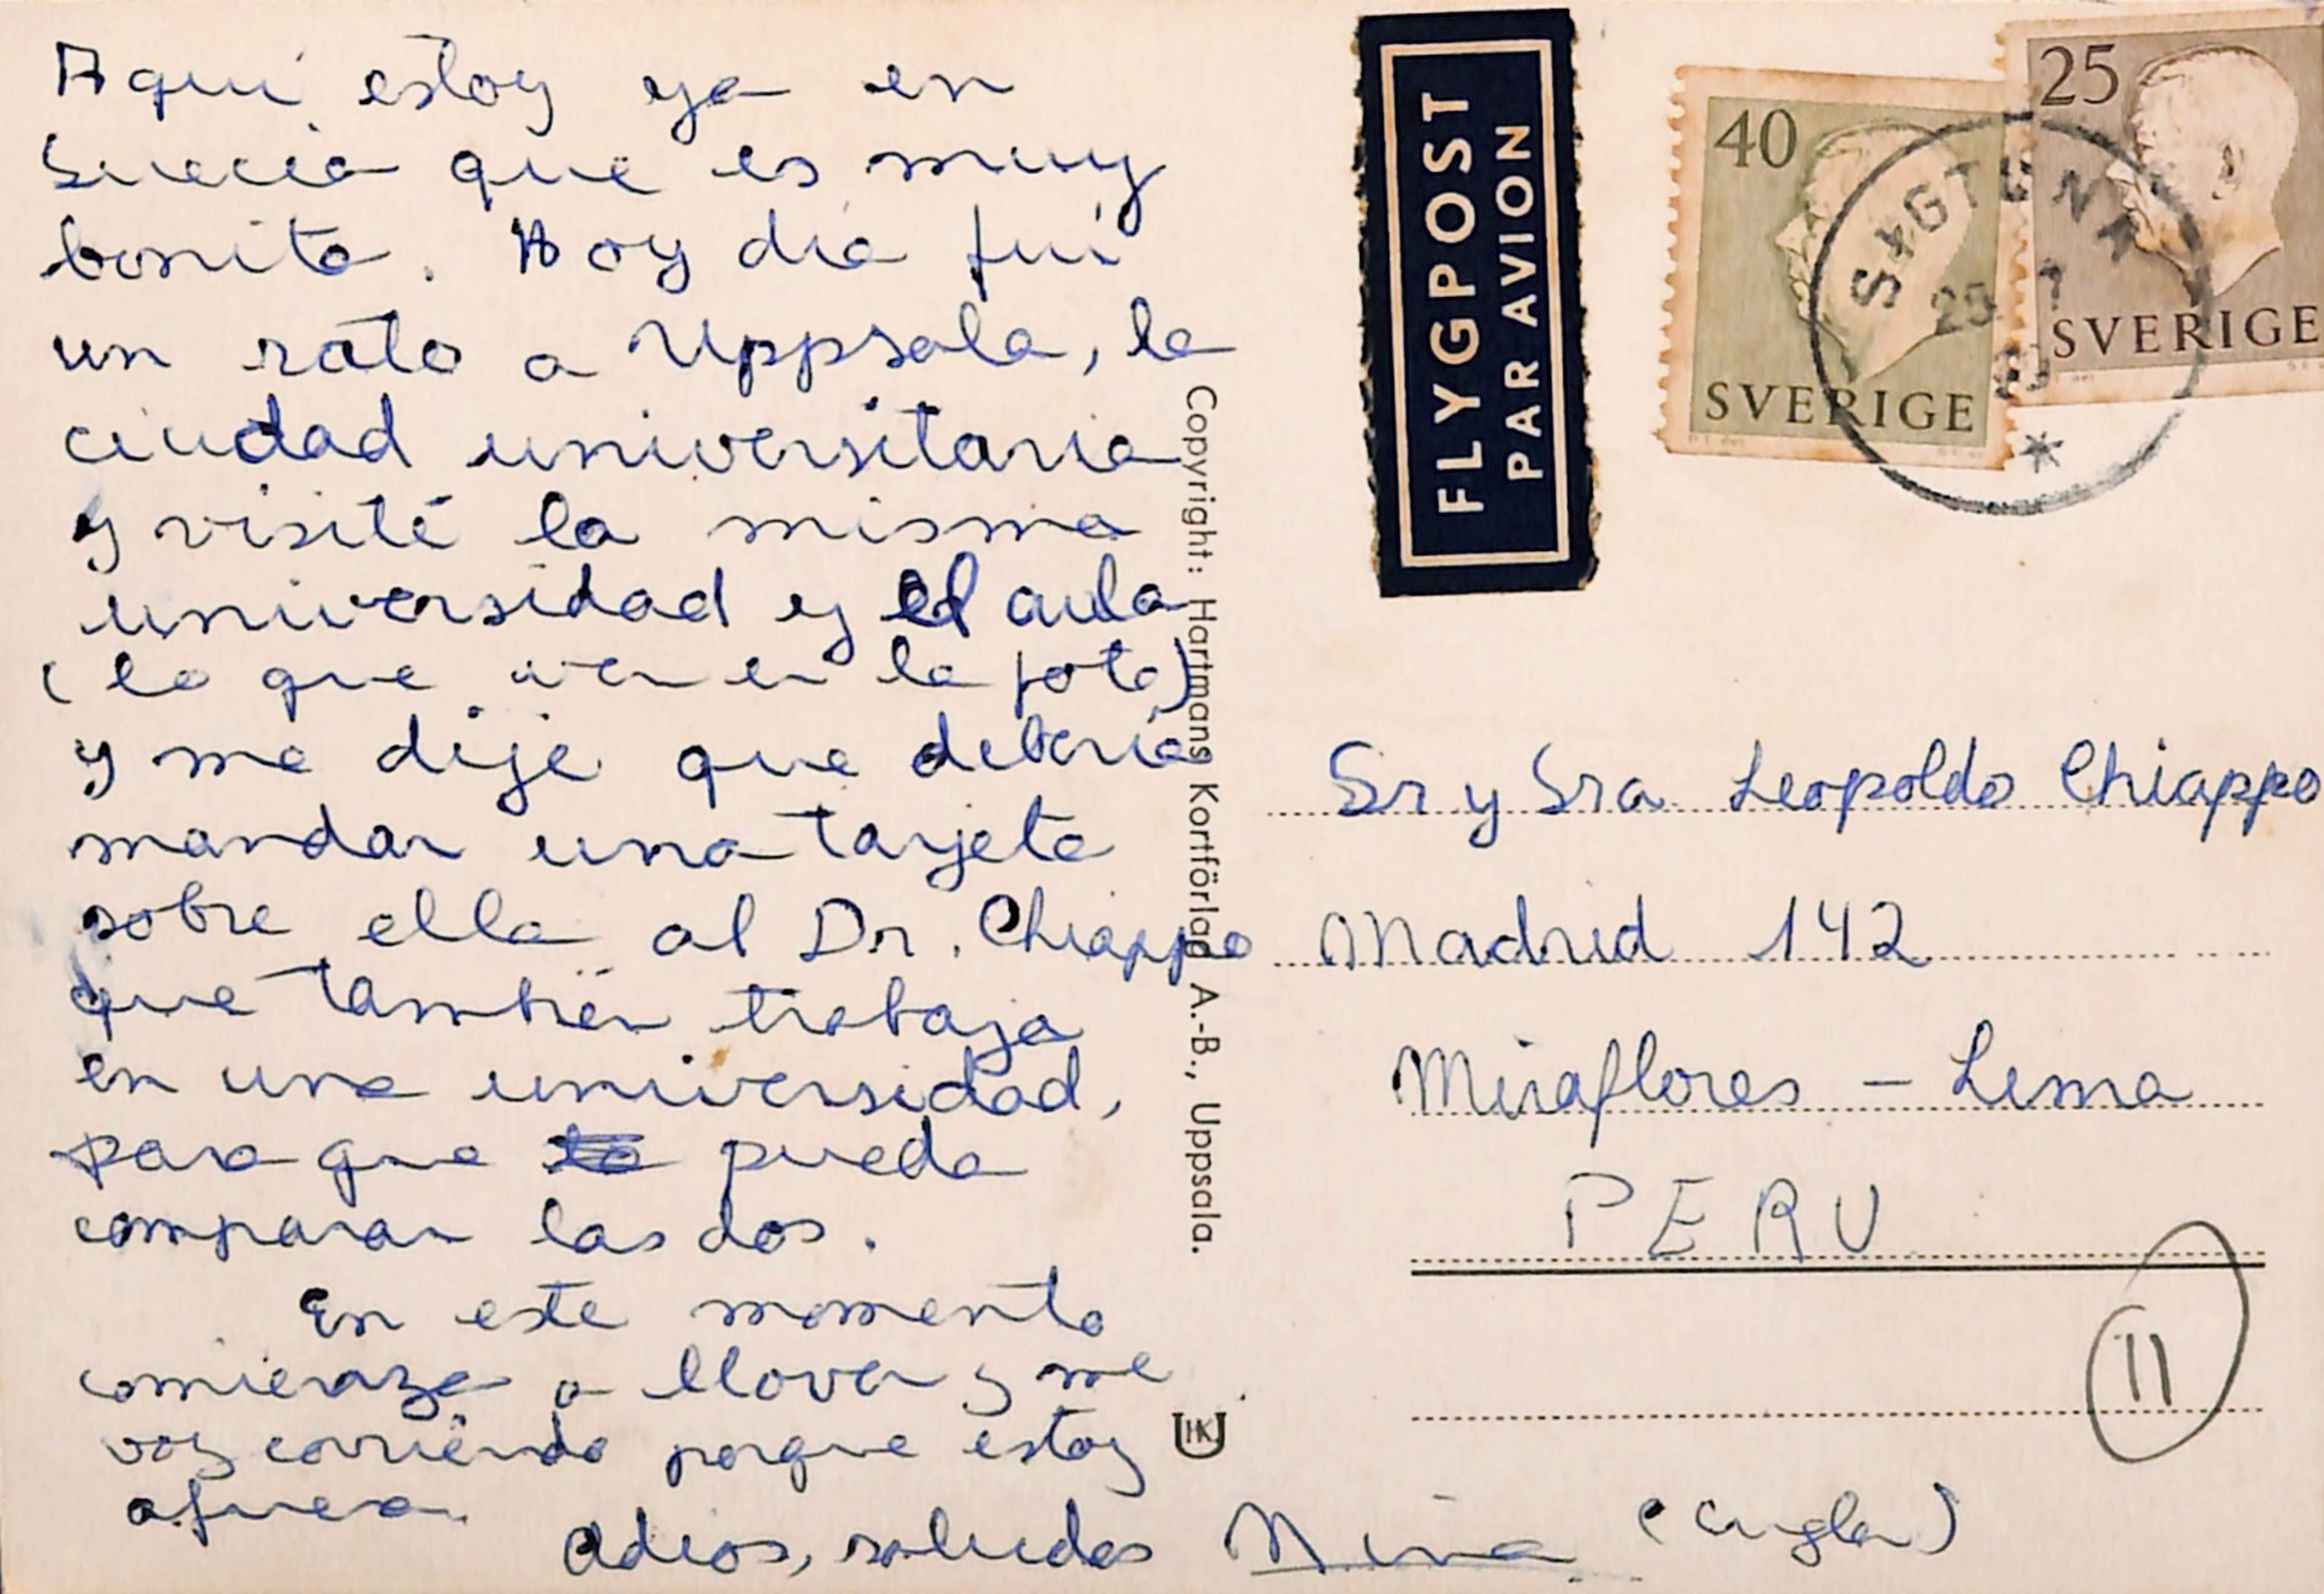 Aquí estoy ya en
Suecia que es muy
bonita. Hoy día fuí
un rato a Uppsala, la
ciudad universitaria
y visité la misma
universidad y el aula
(lo que ven en la foto)
y me dije que debería
mandar una tarjeta
sobre ella al Dr. Chiappo
que también trabaja
en una universidad,
para que pueda
comparar las dos.
En este momento
comienza a llover y me
voy corriendo porque estoy
afuera.
Adios, saludos Nina
Copyright: Hartmans Kortförlag A.-B., Uppsala.
HK
FLYGPOST
PAR AVION
40
SVERIGE
25
SVERIGE
SIGTUNA
25
Sr y Sra Leopoldo Chiappo
Madrid 142
Miraflores - Lima
PERU
11